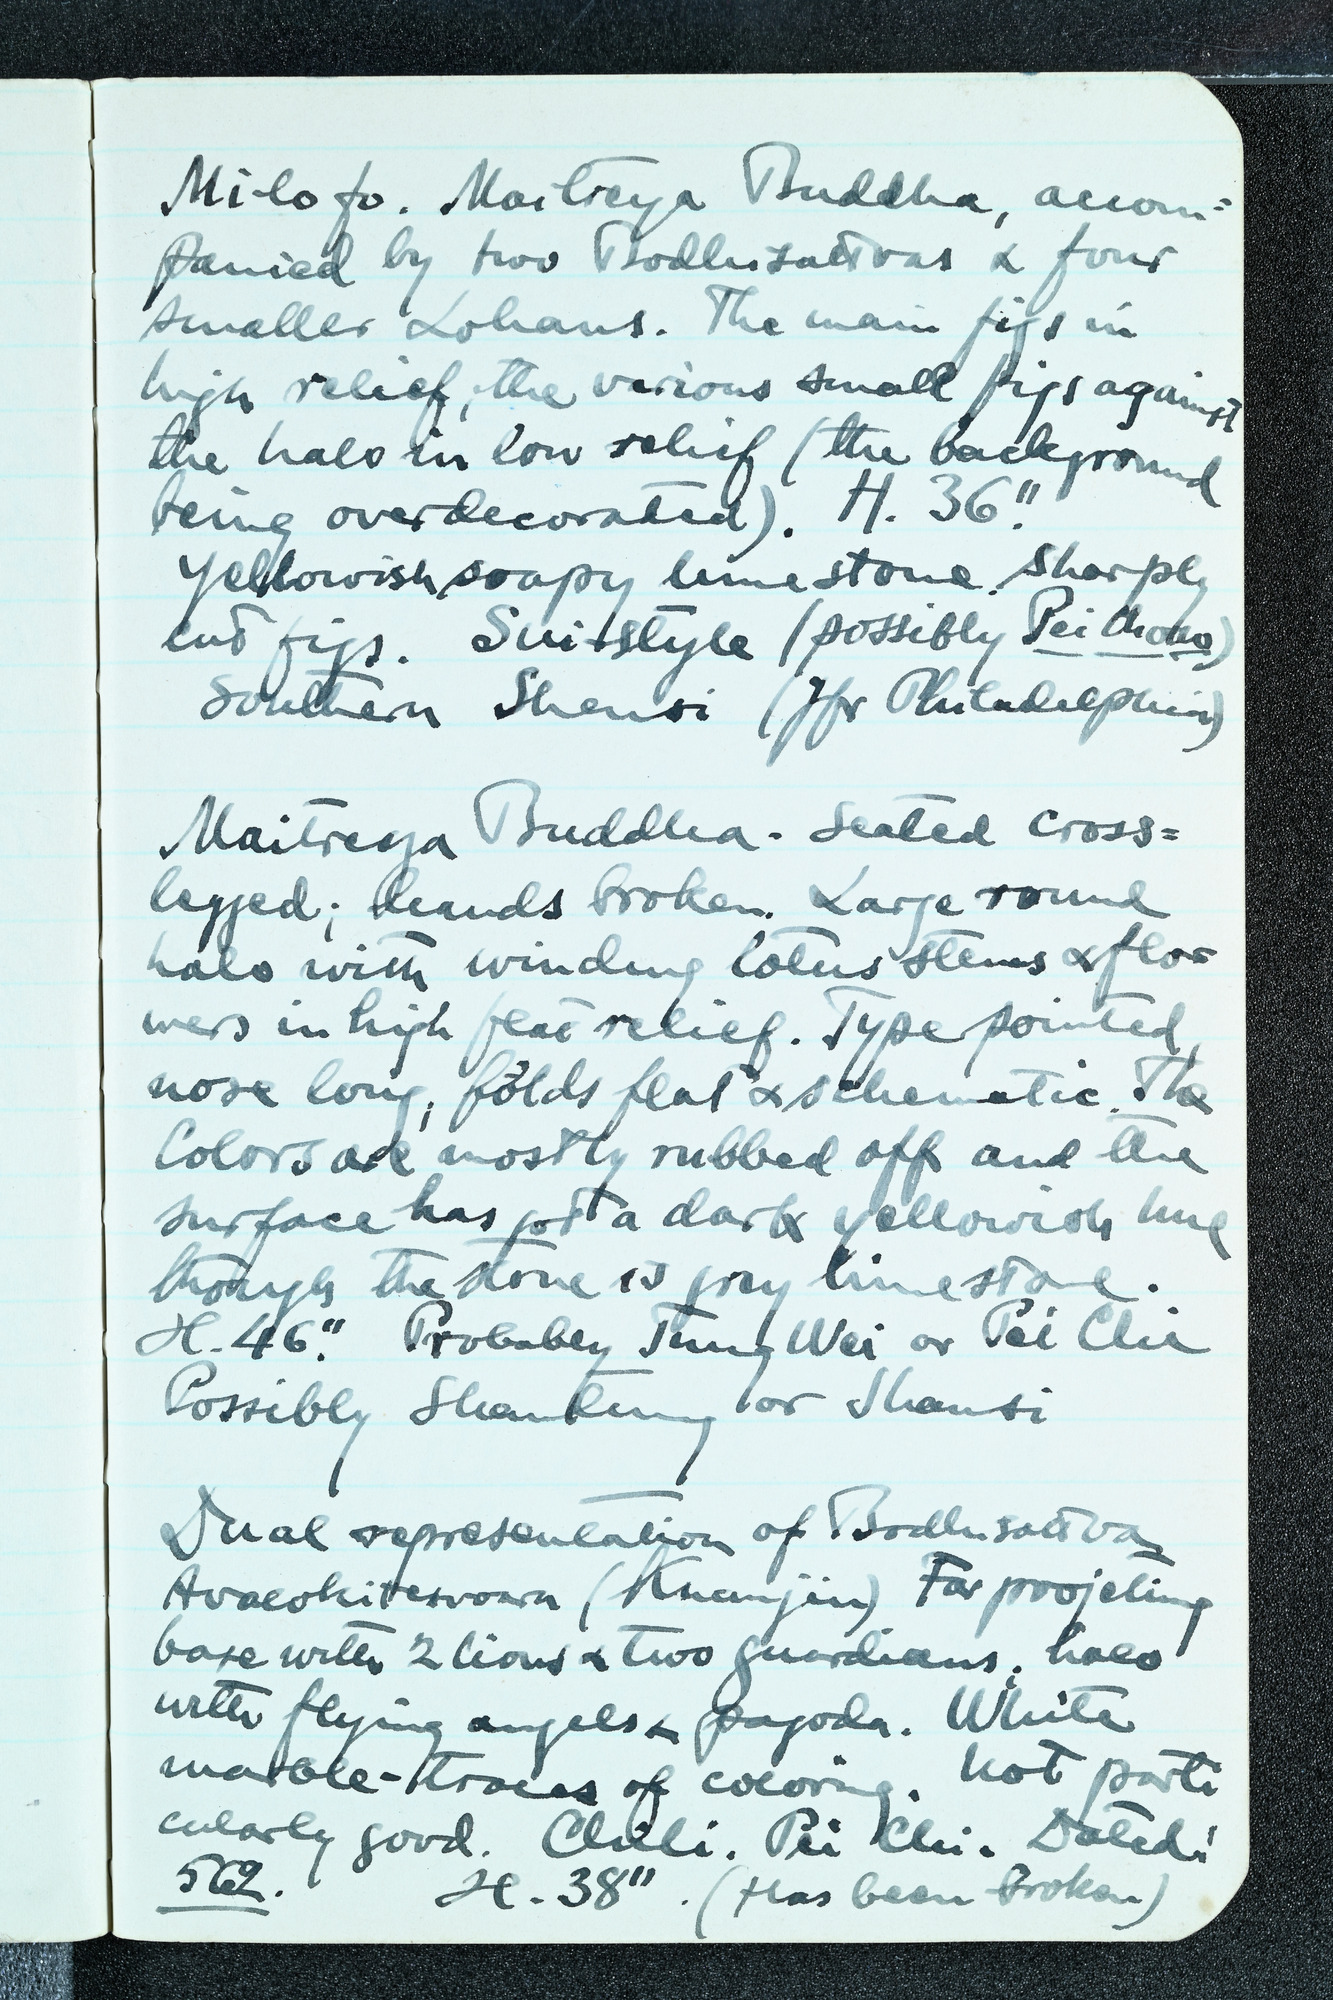 Mi-lo fo. Maitreya Buddha, accom=
panied by two Bodhisattvas & four
smaller Lohans. The main figs in
high relief, the various small figs against
the halo in low relief (the background
being overdecorated). H. 36".
Yellowish, soapy limestone. Sharply
cut figs. Sui-style (possibly Pei Chou)
Southern Shensi (Jfr Philadelphia)
Maitreya Buddha. Seated cross=
legged; hands broken. Large round
halo with winding lotus stems & flo=
wers in high flat relief. Type pointed,
nose long, folds flat & schematic. The
Colors are mostly rubbed off and the
surface has got a dark yellowish hue
though the stone is grey limestone.
H. 46". Probably Tung Wei or Pei Chi
Possibly Shantung or Shansi
Dual representation of Bodhisattva
Avalokitesvara (Kuanjin) Far projeting
base with 2 lions & two guardians, halo
with flying angels & pagoda. White
marble-traces of coloring. Not parti
cularly good. Chili. Pei Chi. Dated:
562. H. 38". (Has been broken)